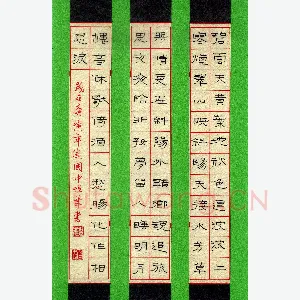 碧雲天黃葉地秋色連波波上
寒煙翠山映斜陽天接水芳草
無情更在斜陽外黯鄉魂追旅
思夜夜除非好夢留人睡明月
樓高休獨倚酒入愁腸化作相
思淚
歲在